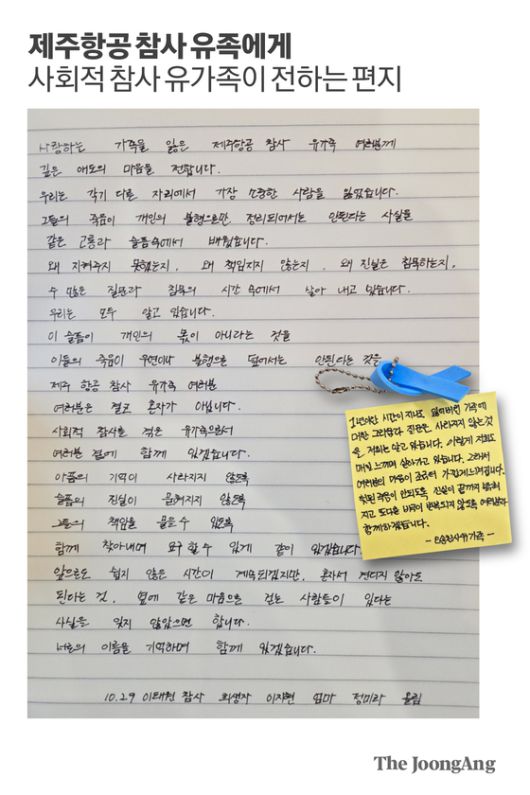 제주항공 참사 유족에게
사회적 참사 유가족이 전하는 편지
사랑하는 가족을 잃은 제주항공 참사 유가족 여러분께
깊은 애도의 마음을 전합니다.
우리는 각기 다른 자리에서 가장 소중한 사람을 잃었습니다.
그들의 죽음이 개인의 불행으로만 정리되어서는 안된다는 사실을
같은 고통과 슬픔속에서 배웠습니다.
왜 지켜주지 못했는지, 왜 책임지지 않는지, 왜 진실은 침묵하는지,
수 많은 질문과 침묵의 시간 속에서 살아 내고 있습니다.
우리는 모두 알고 있습니다.
이 슬픔이 개인의 몫이 아니라는 것을
이들의 죽음이 우연이나 불행으로 덮어서는 안된다는 것을
제주 항공 참사 유가족 여러분
여러분은 결코 혼자가 아닙니다.
사회적 참사를 겪은 유가족으로서
여러분 곁에 함께 있겠습니다.
아픔의 기억이 사라지지 않도록
슬픔의 진실이 묻혀지지 않도록
그들의 책임을 물을 수 있도록
함께 찾아내며 요구할 수 있게 같이 있겠습니다.
앞으로도 쉽지 않은 시간이 계속되겠지만, 혼자서 견디지 않아도
된다는 것, 옆에 같은 마음으로 걷는 사람들이 있다는
사실을 잊지 않았으면 합니다.
너희의 이름을 기억하며 함께 있겠습니다.
10.29 이태원 참사 희생자 이지현 엄마 정미라 올림
1년이란 시간이 지나도, 잃어버린 가족에
대한 그리움과 질문은 사라지지 않는 것
을 저희는 알고 있습니다. 이렇게 저희도
매일 느끼며 살아가고 있습니다. 그래서
여러분의 마음이 조금 더 가깝게 느껴집니다.
헛된 죽음이 안되도록 진실이 끝까지 밝혀
지고 또다른 비극이 반복되지 않도록 여러분과
함께하겠습니다.
- 오송참사유가족 -
The JoongAng